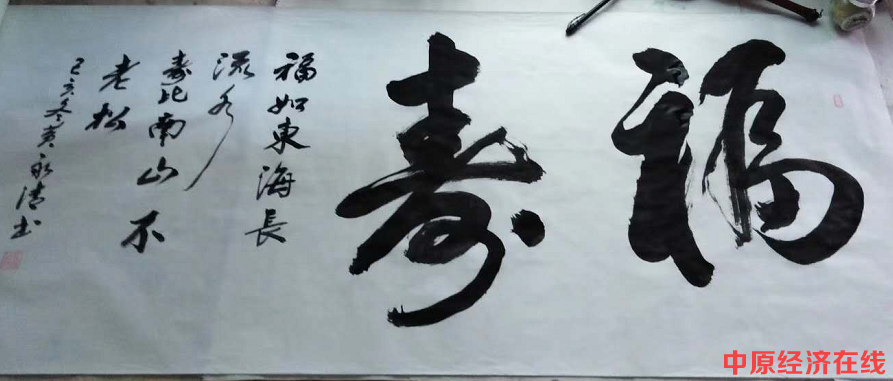 福寿
福如東海長
流水
寿比南山不
老松
己亥冬黄永清书
中原经济在线